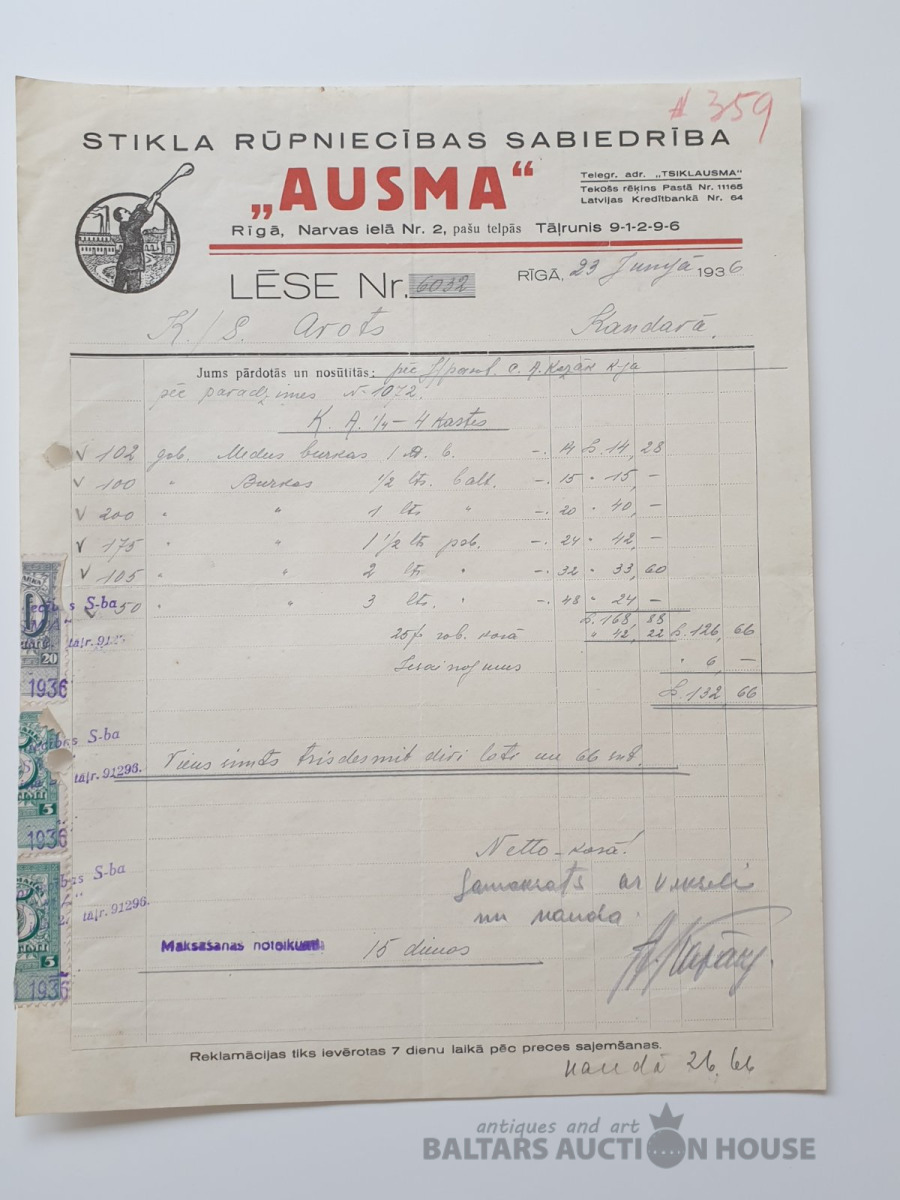 № 359
STIKLA RŪPNIECĪBAS SABIEDRĪBA
„AUSMA“
Telegr. adr. „TSIKLAUSMA“
Tekošs rēķins Pastā Nr. 11165
Latvijas Kredītbankā Nr. 64
Rīgā, Narvas ielā Nr. 2, pašu telpās Tāļrunis 9-1-2-9-6
LĒSE Nr. 6032
RĪGĀ, 23 Junijā 1936.
K./S. Arots Kandavā.
Jums pārdotās un nosūtītās: pēc
pēc paradzimes № 1072.
K. A. 1/4 — 4 kastes
V 102 gab. Medus burkas 1 -. 14 L. 14, 28
V 100 " Burkas 1/2 lts. balt. -. 15 " 15, —
V 200 " " 1 lts " -. 20 " 40, —
V 175 " " 1 1/2 lts pab. -. 24 " 42, —
V 105 " " 2 lts " -. 32 " 33, 60
V 50 " " 3 lts. " -. 48 " 24 —
L. 168, 88
25% rob. kasā " 42, 22 L. 126, 66
Iesaiņojums " 6, —
L. 132 66
Viens simts trīsdesmit divi lati un 66 snt.
Netto-kasā!
Samaksāts ar vekseli
un naudā.
Maksāšanas noteikumi 15 dienas
Reklamācijas tiks ievērotas 7 dienu laikā pēc preces saņemšanas.
naudā 26.66
S-ba
20
1936
S-ba
tāļr. 91296.
5
1936
S-ba
tāļr. 91296.
5
1936
antiques and art
BALTARS AUCTION HOUSE